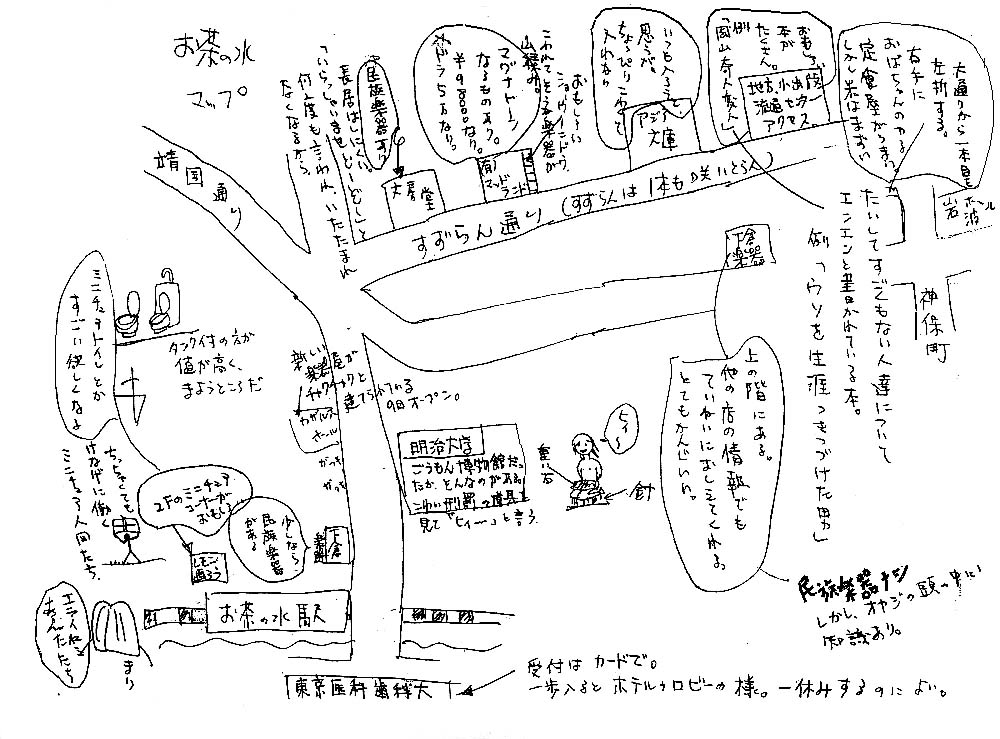 お茶の水
マップ
靖国通り
「いらっしゃいませ どーどど」と
何度も言われ、いたたまれ
なくなるから
長居はしにくい。
民族楽器あり
文房堂
すずらん通り (すずらんは1本も咲いとらん)
マグナトーン
なるものあり。
¥99800なり。
5万なり。
(有)
マッド
ランド
おもしろい
ショーウィンドウ
こわれてそうな楽器が
山積み。
いつも入ろうと
思うが、
ちょっぴりこわくて
入れない
アジア
文庫
おもしろ
本が
たくさん。
例
「岡山奇人変人」
地方・小出版
流通センター
アクセス
大通りから一本目を
左折する。
右手に
おばちゃんのやる
定食屋がうまい。
しかし米はまずい
岩波
ホール
神保町
たいしてすごくもない人達について
エンエンと書かれている本。
例「ウソを生涯つきつづけた男」
下倉
楽器
上の階にある。
他の店の情報でも
ていねいにおしえてくれる。
とてもかんじいい。
民族楽器ナシ
しかし、オヤジの頭の中に
知識あり。
ミニチュアトイレとか
すごい欲しくなる
タンク付の方が
値が高く、
まようところだ
新しい
楽器屋が
チャクチャクと
建てられている
9日オープン。
カザルス
ホール
がっき
がっき
明治大学
ごうもん博物館だっ
たか、そんなのがある。
こわい刑罰の道具を
見て「ヒィー」と言う。
ヒィ〜
重い石
針
ちっちゃくても
けなげに働く
ミニチュア人間たち.
2Fのミニチュア
コーナーが
おもしろ
レモン
画すい
少しなら
民族楽器
がある
下倉
楽器
お茶の水駅
まり
東京医科歯科大
受付はカードで。
一歩入るとホテルのロビーの様。一休みするのによい。